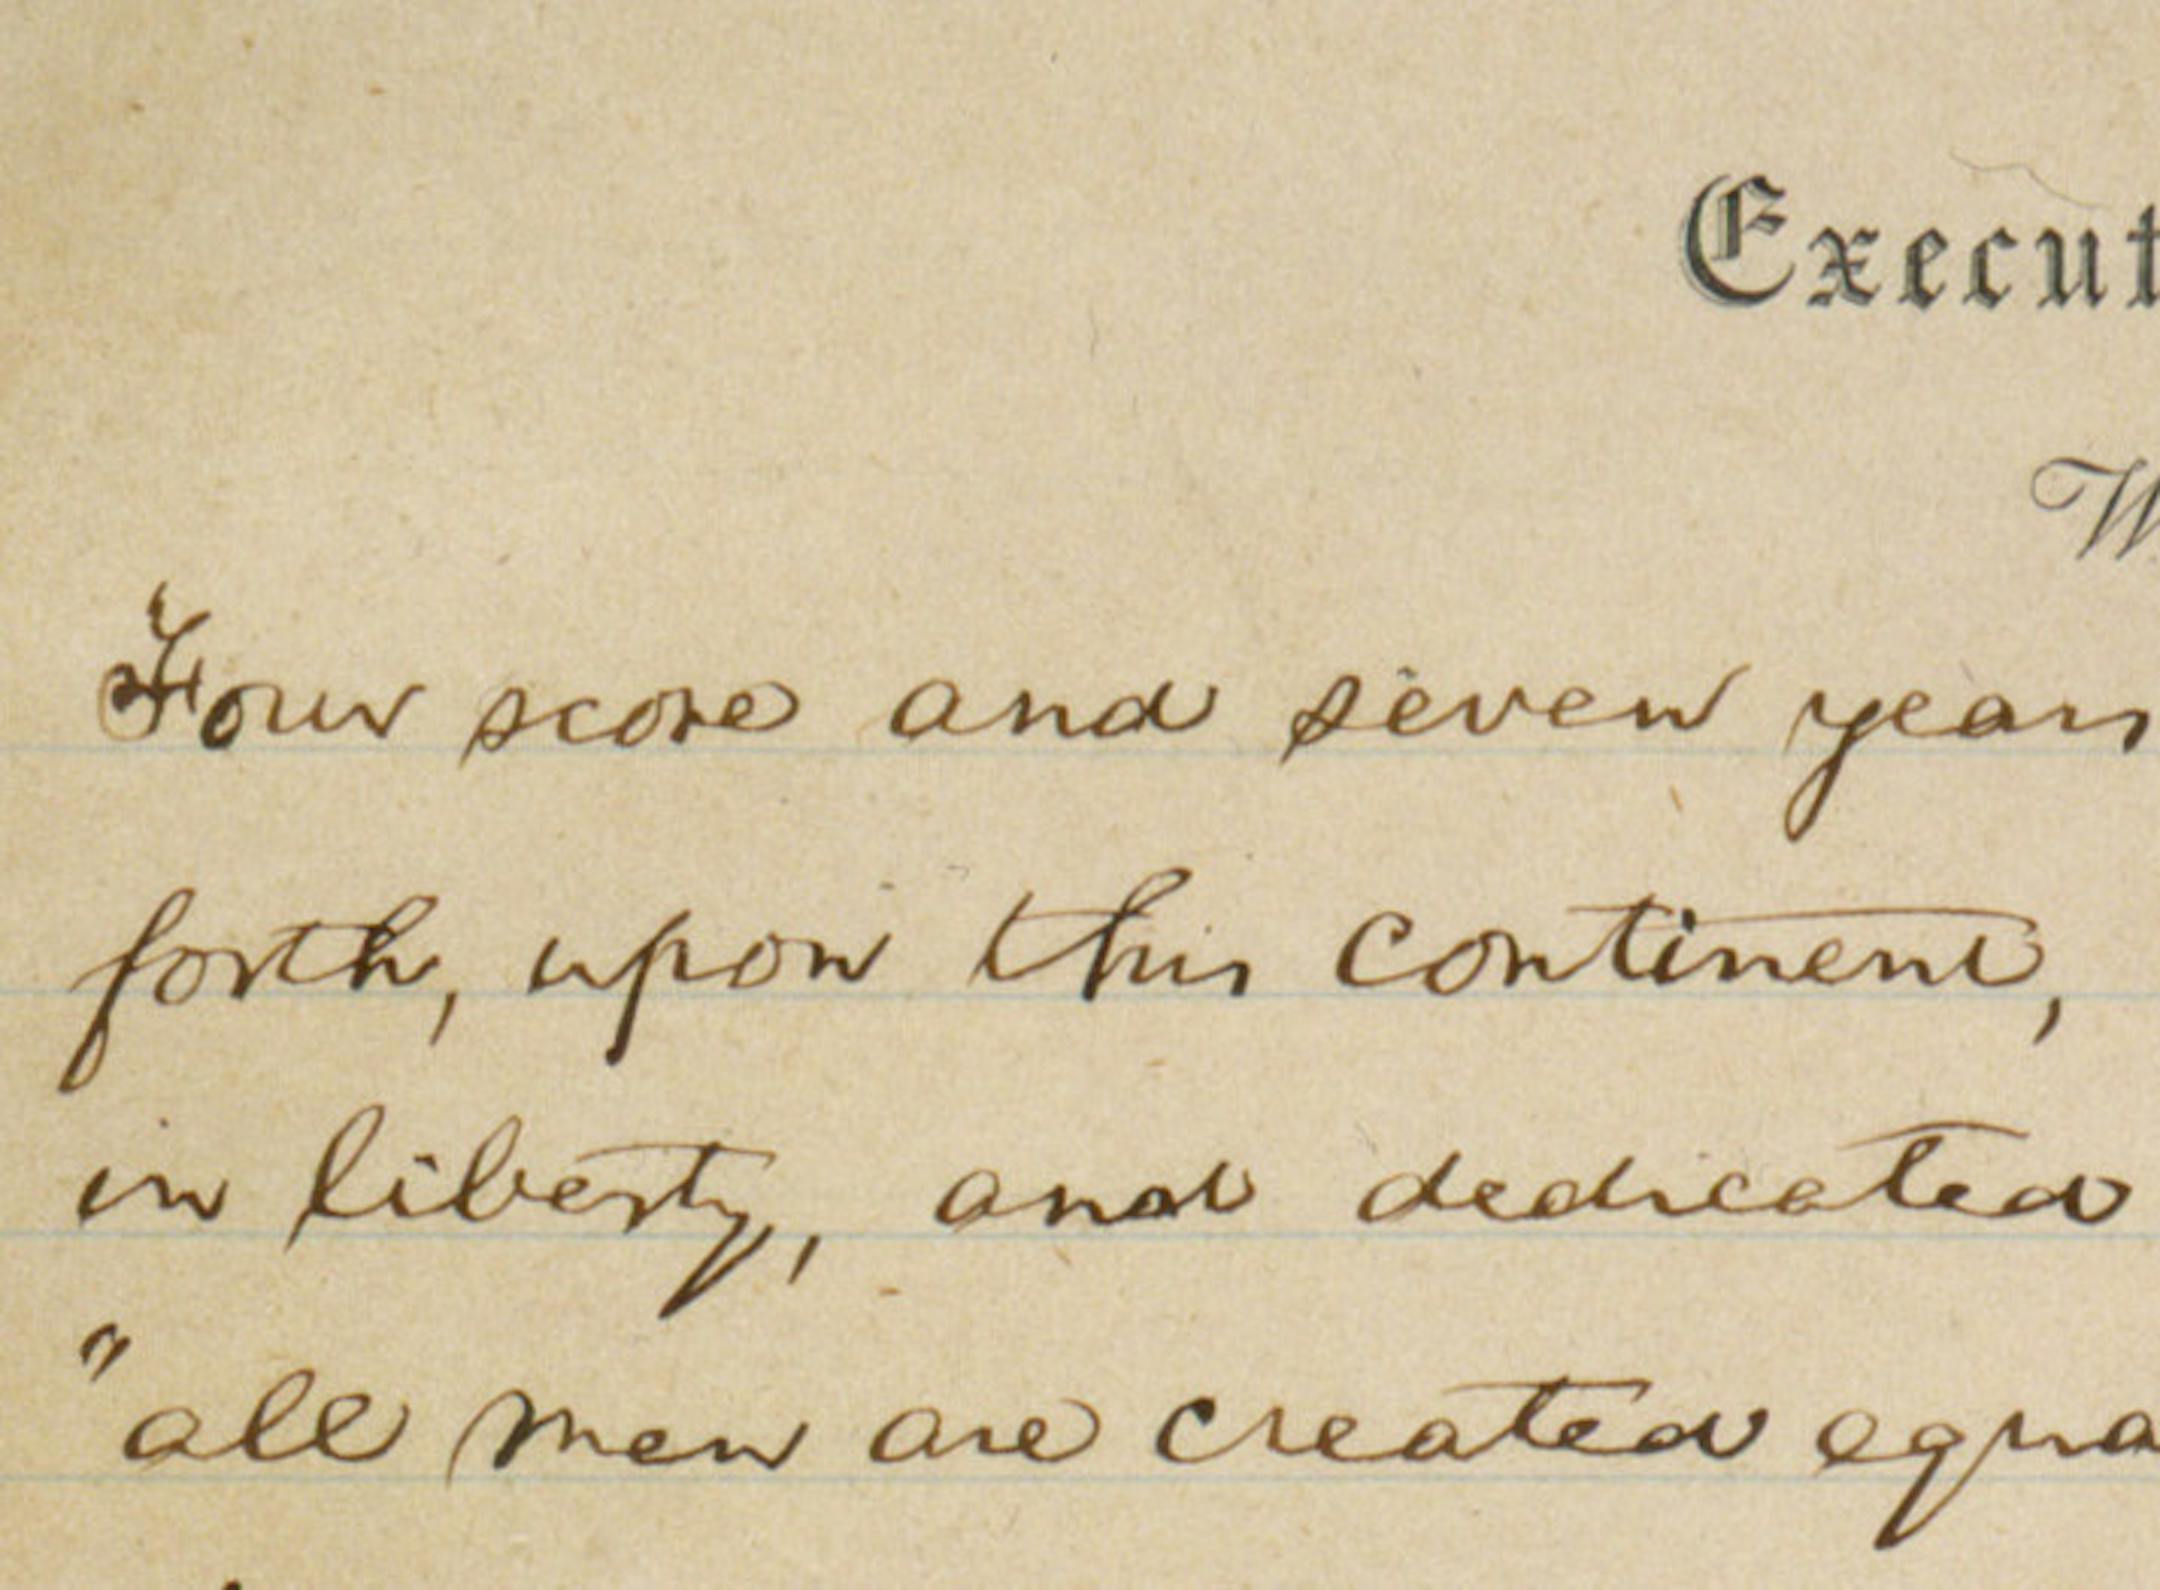 Execut
W
Four score and seven years
forth, upon this continent,
in liberty, and dedicated
"all men are created equa